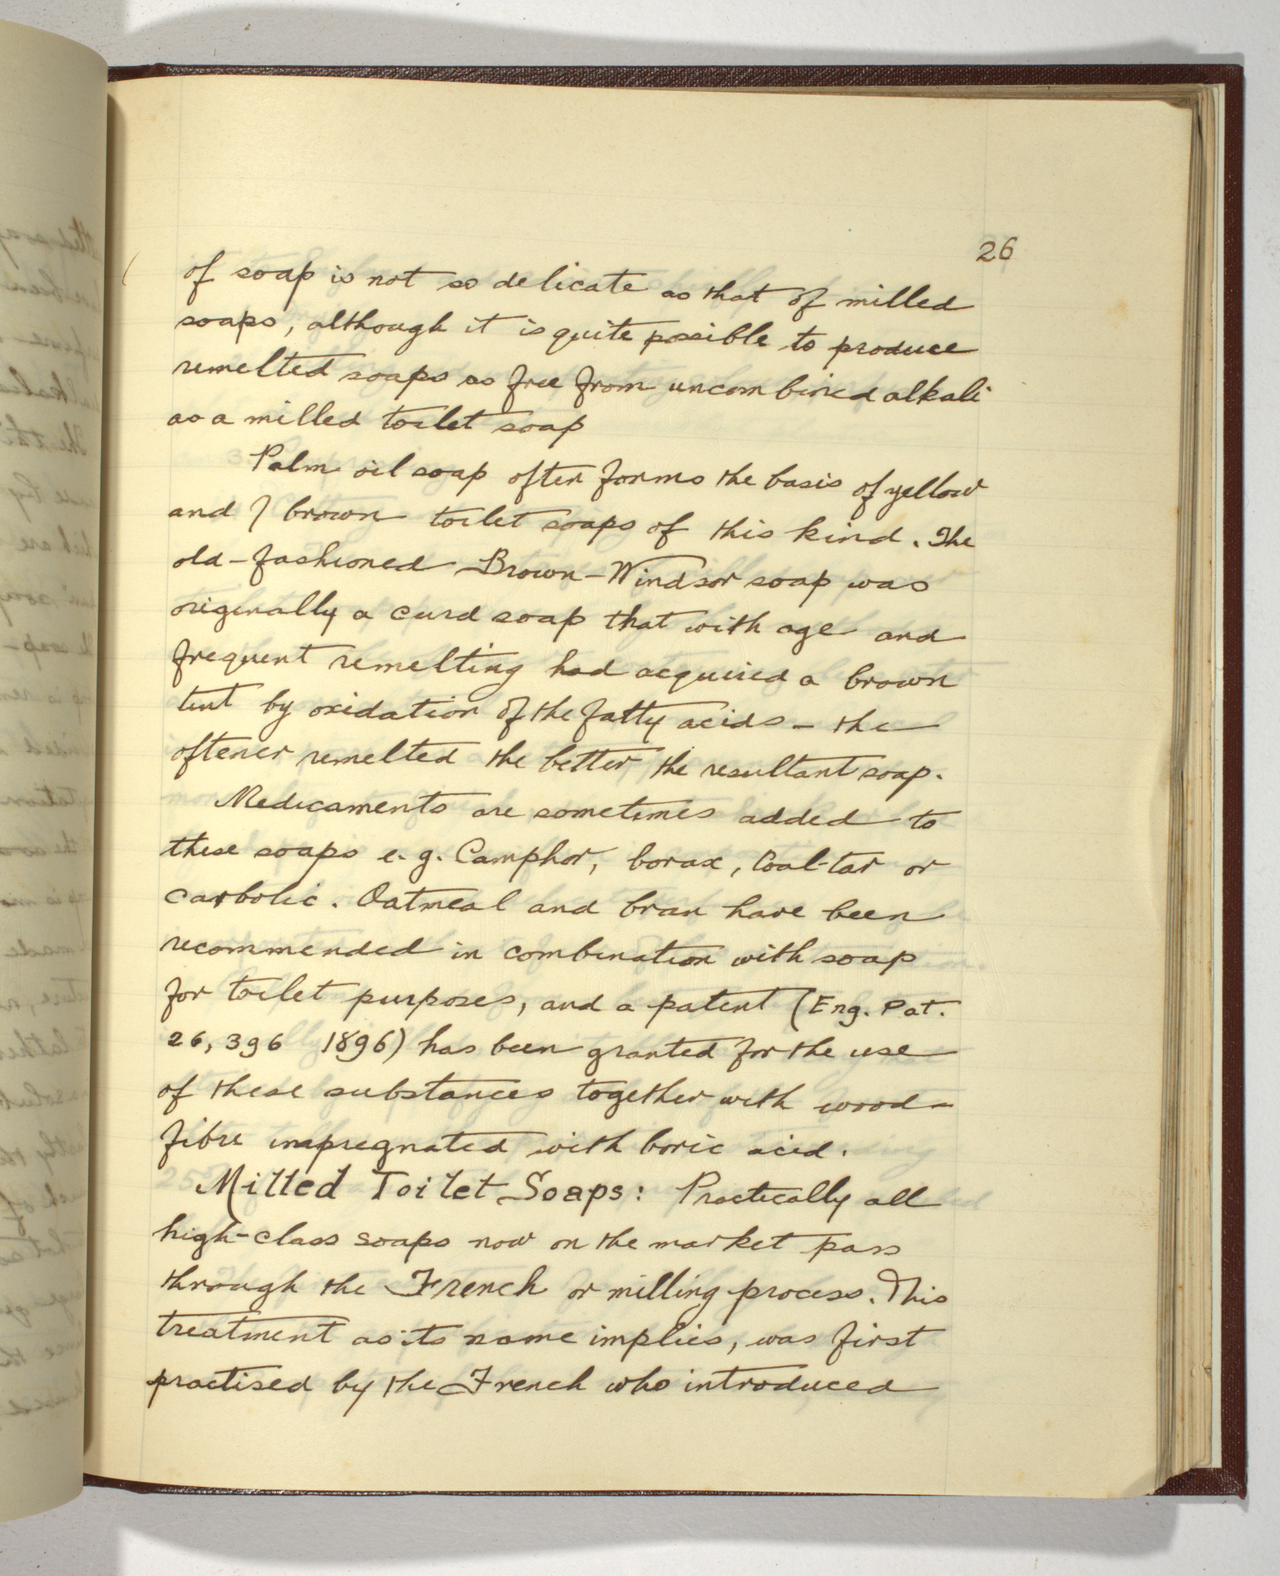 26
of soap is not so delicate as that of milled
soaps, although it is quite possible to produce
remelted soaps as free from uncombined alkali
as a milled toilet soap
Palm oil soap often forms the basis of yellow
and / brown toilet soaps of this kind. The
old-fashioned Brown-Windsor soap was
originally a curd soap that with age and
frequent remelting had acquired a brown
tint by oxidation of the fatty acids - the
oftener remelted the better the resultant soap.
Medicaments are sometimes added to
these soaps e.g. Camphor, borax, Coal-tar or
carbolic. Oatmeal and bran have been
recommended in combination with soap
for toilet purposes, and a patent (Eng. Pat.
26,396 1896) has been granted for the use
of these substances together with wood-
fibre impregnated with boric acid.
Milled Toilet Soaps: Practically all
high-class soaps now on the market pass
through the French or milling process. This
treatment as its name implies, was first
practised by the French who introduced